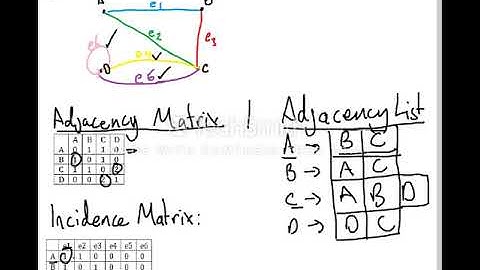 A e1 B
e2
e3
D C
e6
Adjacency Matrix
A B C D
A 0 1 1 0
B 1 0 1 0
C 1 1 0 2
D 0 0 2 1
=
Adjacency List
A → B C
B → A C
C → A B D
D → D C
Incidence Matrix:
e1 e2 e3 e4 e5 e6
A 1 0 0 0 0
B 1 0 1 0 0 0